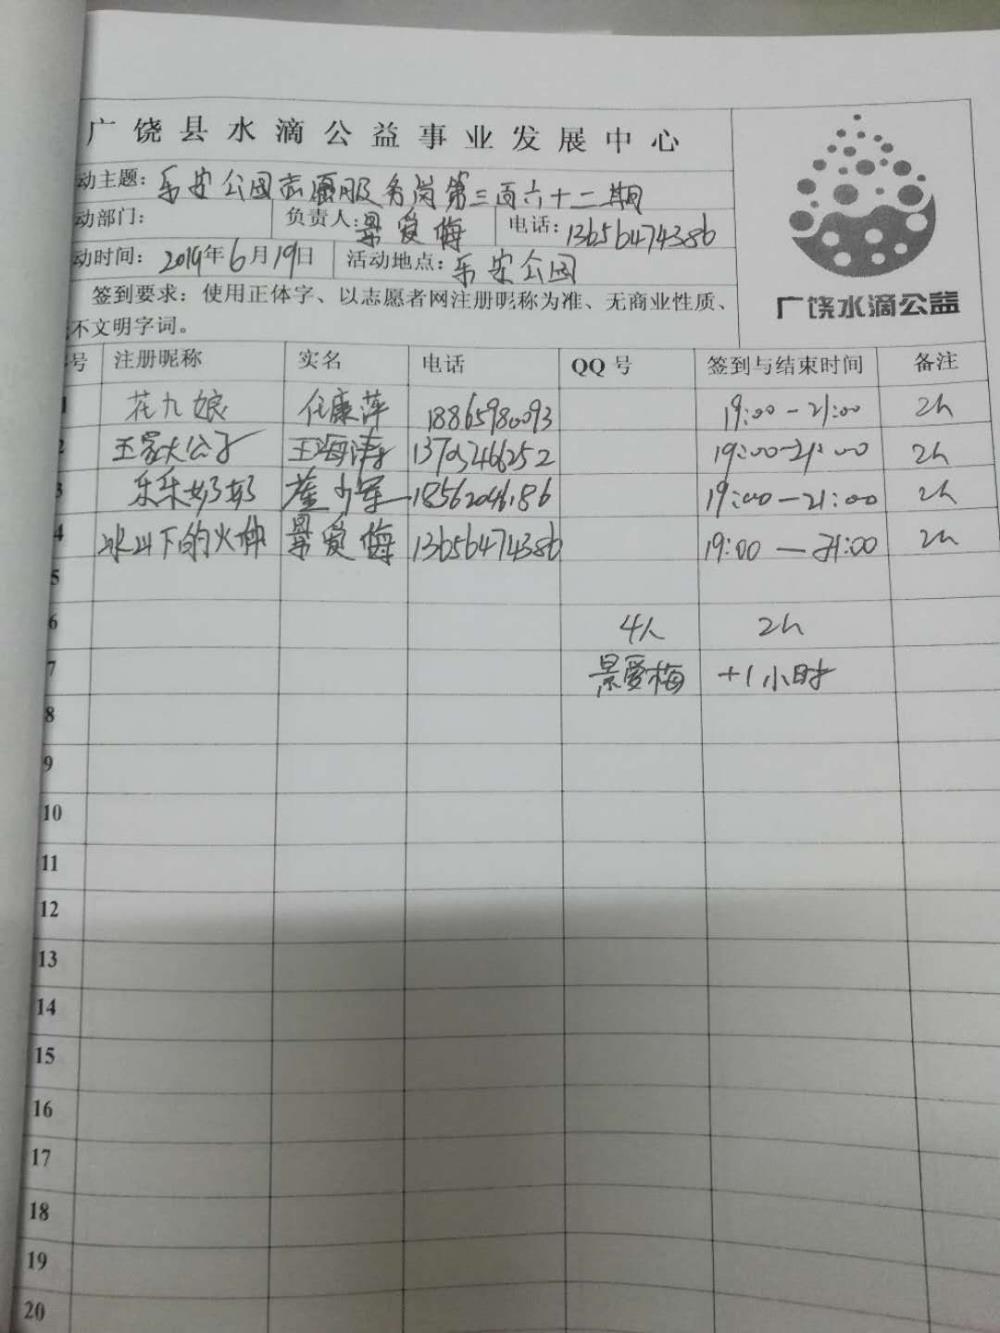 广饶县水滴公益事业发展中心
动主题：乐安公园志愿服务岗第三百六十二期
动部门： 负责人：景爱梅 电话：13656474386
动时间：2019年6月19日 活动地点：乐安公园
签到要求：使用正体字、以志愿者网注册昵称为准、无商业性质、
不文明字词。
广饶水滴公益
号 注册昵称 实名 电话 QQ号 签到与结束时间 备注
1 花九娘 任康萍 18865980093 19:00-21:00 2h
2 王家大公子 王海涛 19:00-21:00 2h
3 乐乐奶奶 18562046186 19:00-21:00 2h
4 冰山下的火种 景爱梅 13656474386 19:00-21:00 2h
5
6 4人 2h
7 景爱梅 +1小时
8
9
10
11
12
13
14
15
16
17
18
19
20